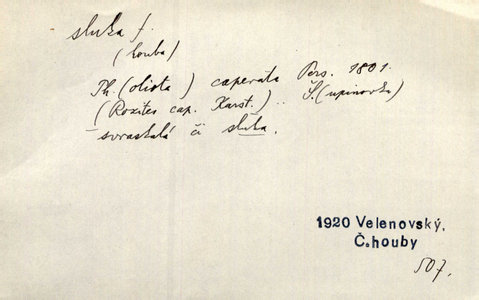 sluka f.
(houba)
Ph. (oliota) caperata Pers. 1801.
(Rozites cap. Karst.).. Š.(upinovka)
svraskalá či sluka.
1920 Velenovský,
Č.houby
507.